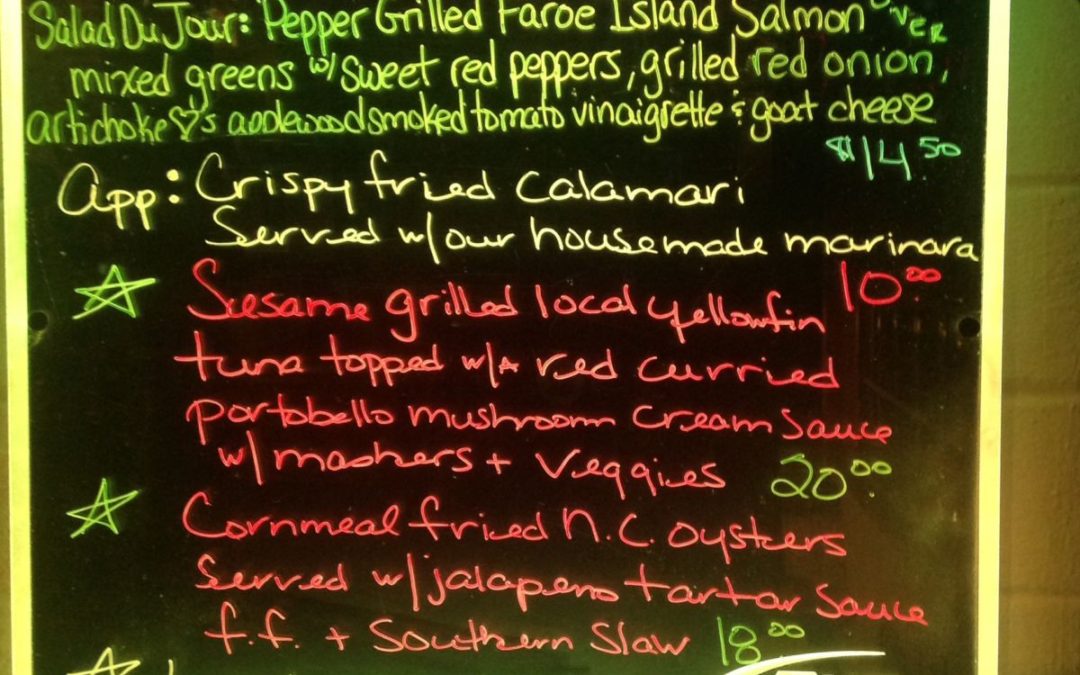 Salad Du Jour: Pepper Grilled Faroe Island Salmon over
mixed greens w/ sweet red peppers, grilled red onion,
artichoke ♡'s applewood smoked tomato vinaigrette & goat cheese
$14.50
App: Crispy fried calamari
Served w/ our housemade marinara
10.00
Sesame grilled local yellowfin
tuna topped w/ A red curried
portobello mushroom cream sauce
w/ mashers + veggies 20.00
Cornmeal fried N.C. oysters
Served w/ jalapeno tartar sauce
f.f. + Southern Slaw 18.00